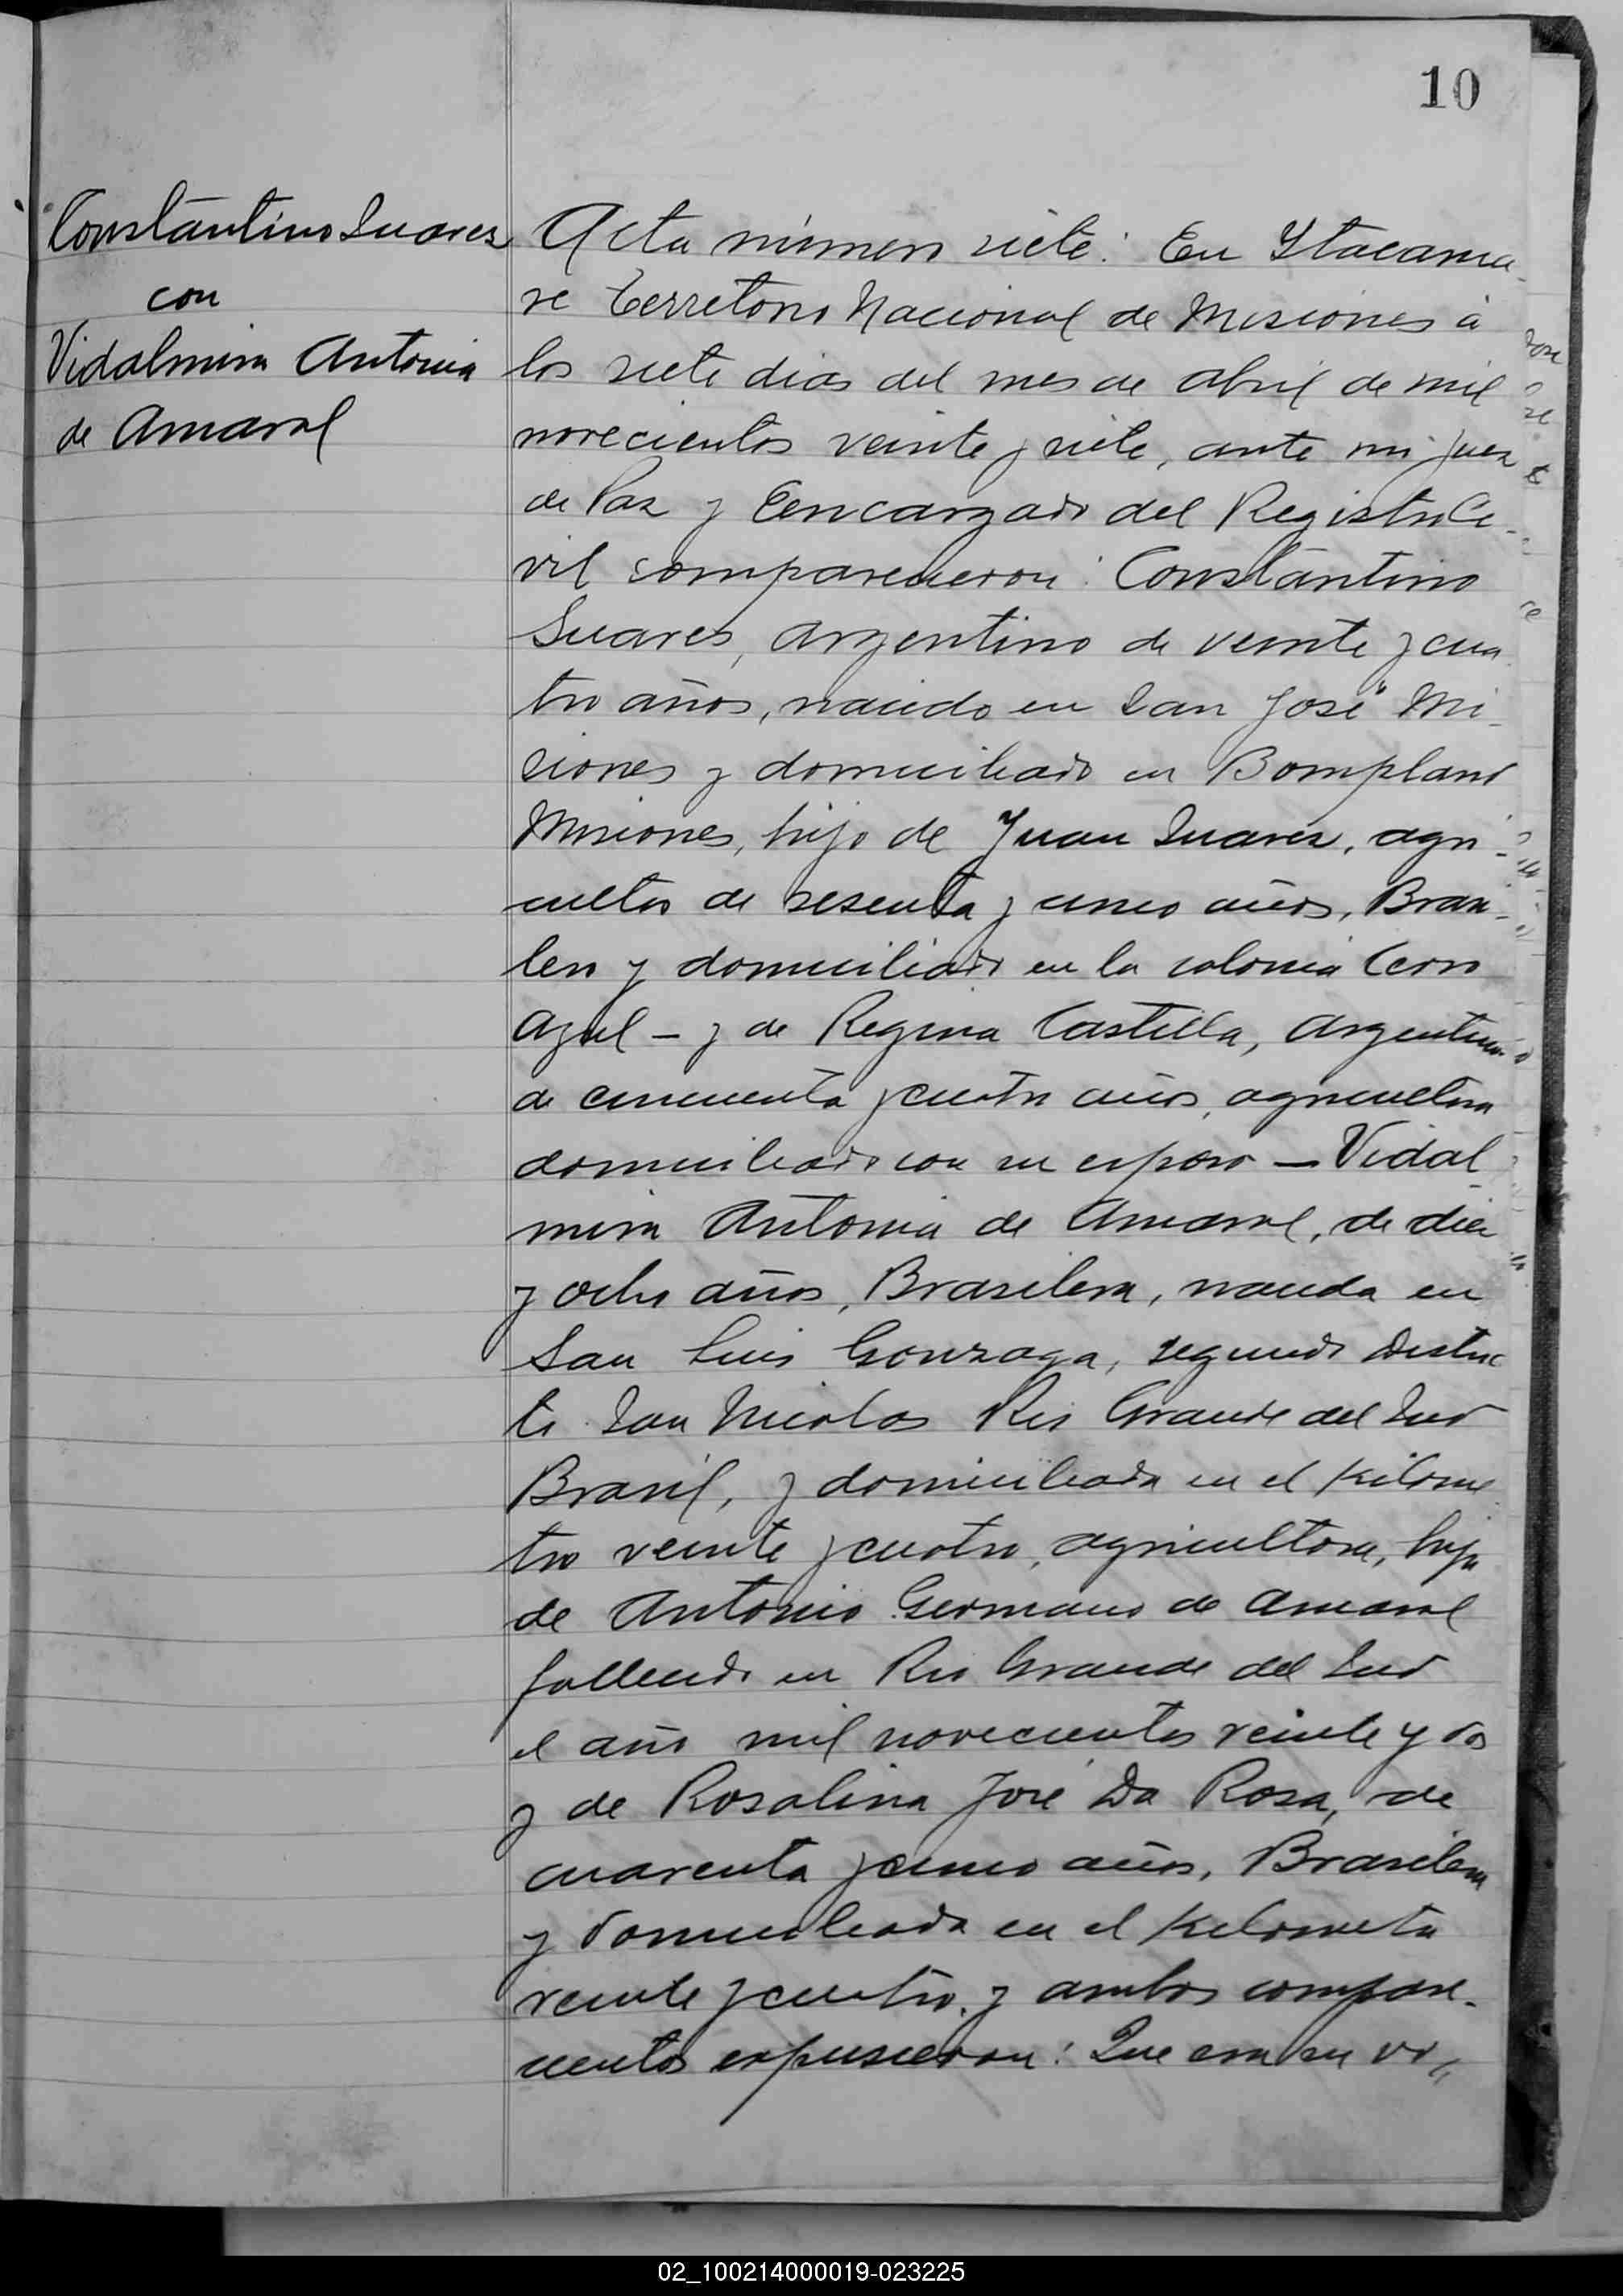 10
Constantino Suarez
con
Vidalmira Antonia
de Amaral
Acta número siete: En Itacarua-
re Territorio Nacional de Misiones á
los siete dias del mes de abril de mil
novecientos veinte y siete, ante mi Juez
de Paz y Encargado del Registro Ci-
vil comparecieron: Constantino
Suares, argentino de veinte y cua
tro años, nacido en San José Mi-
siones y domiciliado en Bompland
Misiones, hijo de Juan Suarez, agri-
cultor de sesenta y cinco años, Brasi-
lero y domiciliado en la colonia Cerro
Azul - y de Regina Castilla, Argentina
de cincuenta y cuatro años, agricultora
domiciliada con su esposo - Vidal-
mira Antonia de Amaral, de diez
y ocho años, Brasilera, nacida en
San Luis Gonzaga, segundo Distric
to San Nicolas Rio Grande del Sud
Brasil, y domiciliada en el Kilome
tro veinte y cuatro, agricultora, hija
de Antonio Germano de Amaral
fallecido en Rio Grande del Sud
el año mil novecientos veinte y dos
y de Rosalina José Da Rosa, de
cuarenta y cinco años, Brasilera
y domiciliada en el Kilometro
veinte y cuatro, y ambos compare-
cientes expusieron: Que era su vo
02_100214000019-023225